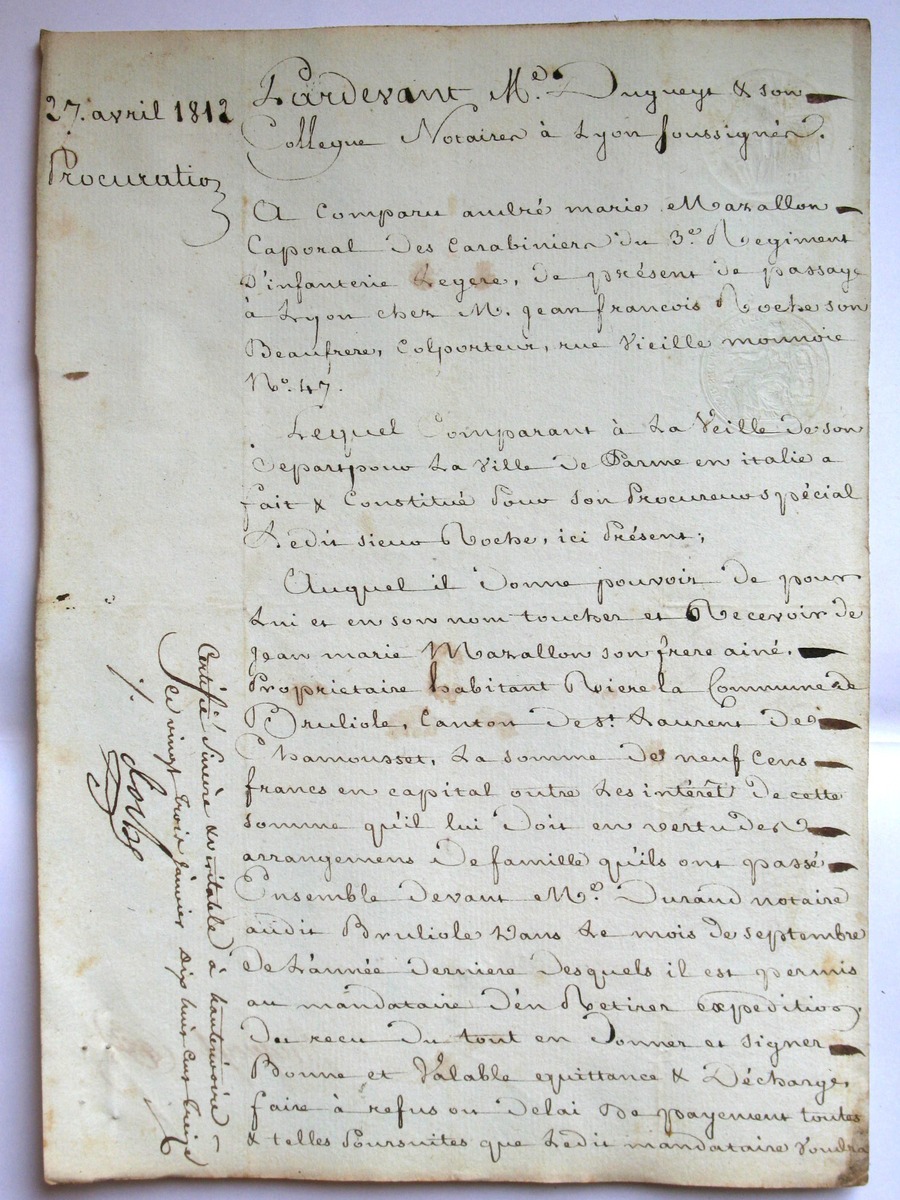 27. avril 1812
Procuration
Pardevant Me. Dugueyt & son
Collegue Notaires à Lyon soussignés.
A Comparu andré marie Mazallon
Caporal Des Carabiniers du 3e. Regiment
D'infanterie Legere, de présent de passage
à Lyon chez M. jean francois Roche son
Beaufrere, Colporteur, rue Vieille monnoie
No. 47.
Lequel Comparant à La Veille De son
Depart pour La Ville De Parme en italie a
fait & Constitué Pour son Procureur spécial
Ledit sieur Roche, ici Présent;
Auquel il Donne pouvoir De pour
Lui et en son nom toucher et Recevoir de
jean marie Mazallon son frere ainé.
Proprietaire habitant Riere la Commune de
Bruliole, Canton De st. Laurent De
Chamousset, La somme De neuf Cens
francs en Capital outre Les intérêts De cette
somme qu'il lui Doit en vertu des
arrangemens De famille qu'ils ont passé
Ensemble Devant Me. Durand notaire
audit Bruliole Dans Le mois De septembre
De L'année Derniere Desquels il est permis
au mandataire D'en Retirer expedition,
Du recu Du tout en Donner et signer
Bonne et Valable equittance & Décharge,
faire à refus ou Delai De payement toutes
& telles Poursuites que Ledit mandataire Voudra
Certifié Sincère & véritable à
ce vingt trois janvier Dix huit Cent treize